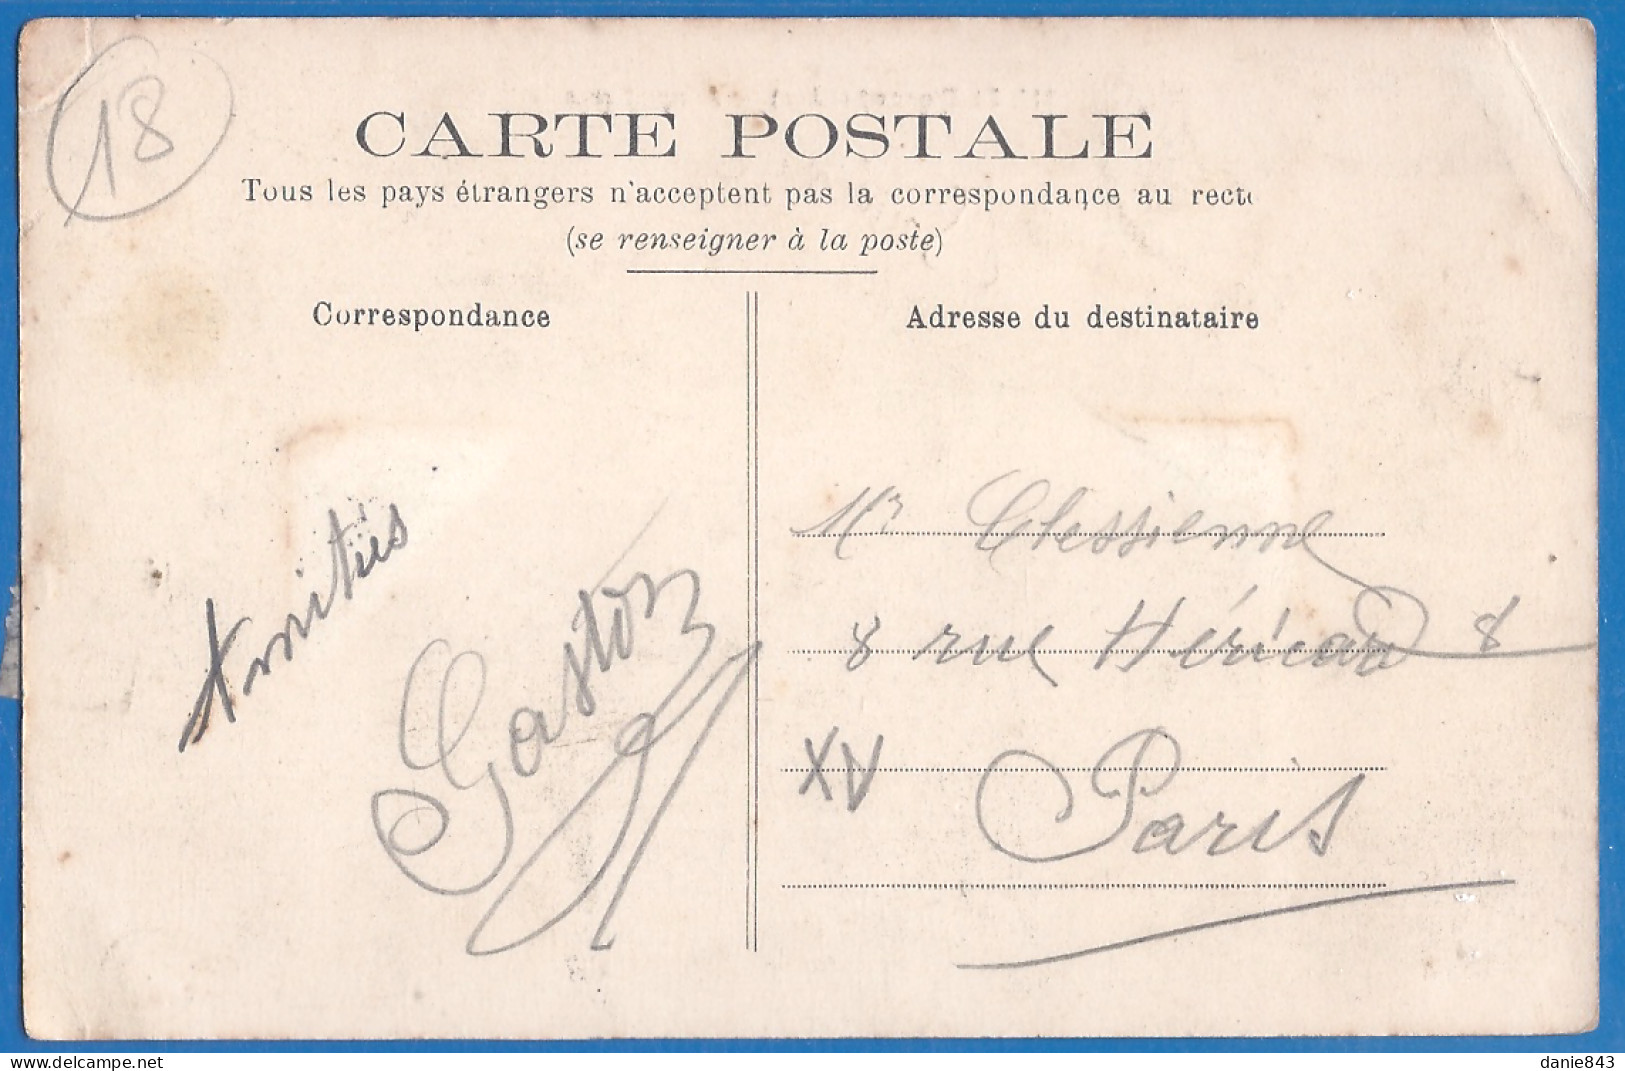 18
CARTE POSTALE
Tous les pays étrangers n'acceptent pas la correspondance au recto
(se renseigner à la poste)
Correspondance
Amitiés
Gaston
Adresse du destinataire
Mr Clessienne
8 rue Héricart 8
XV Paris
delcampe.net
danie843